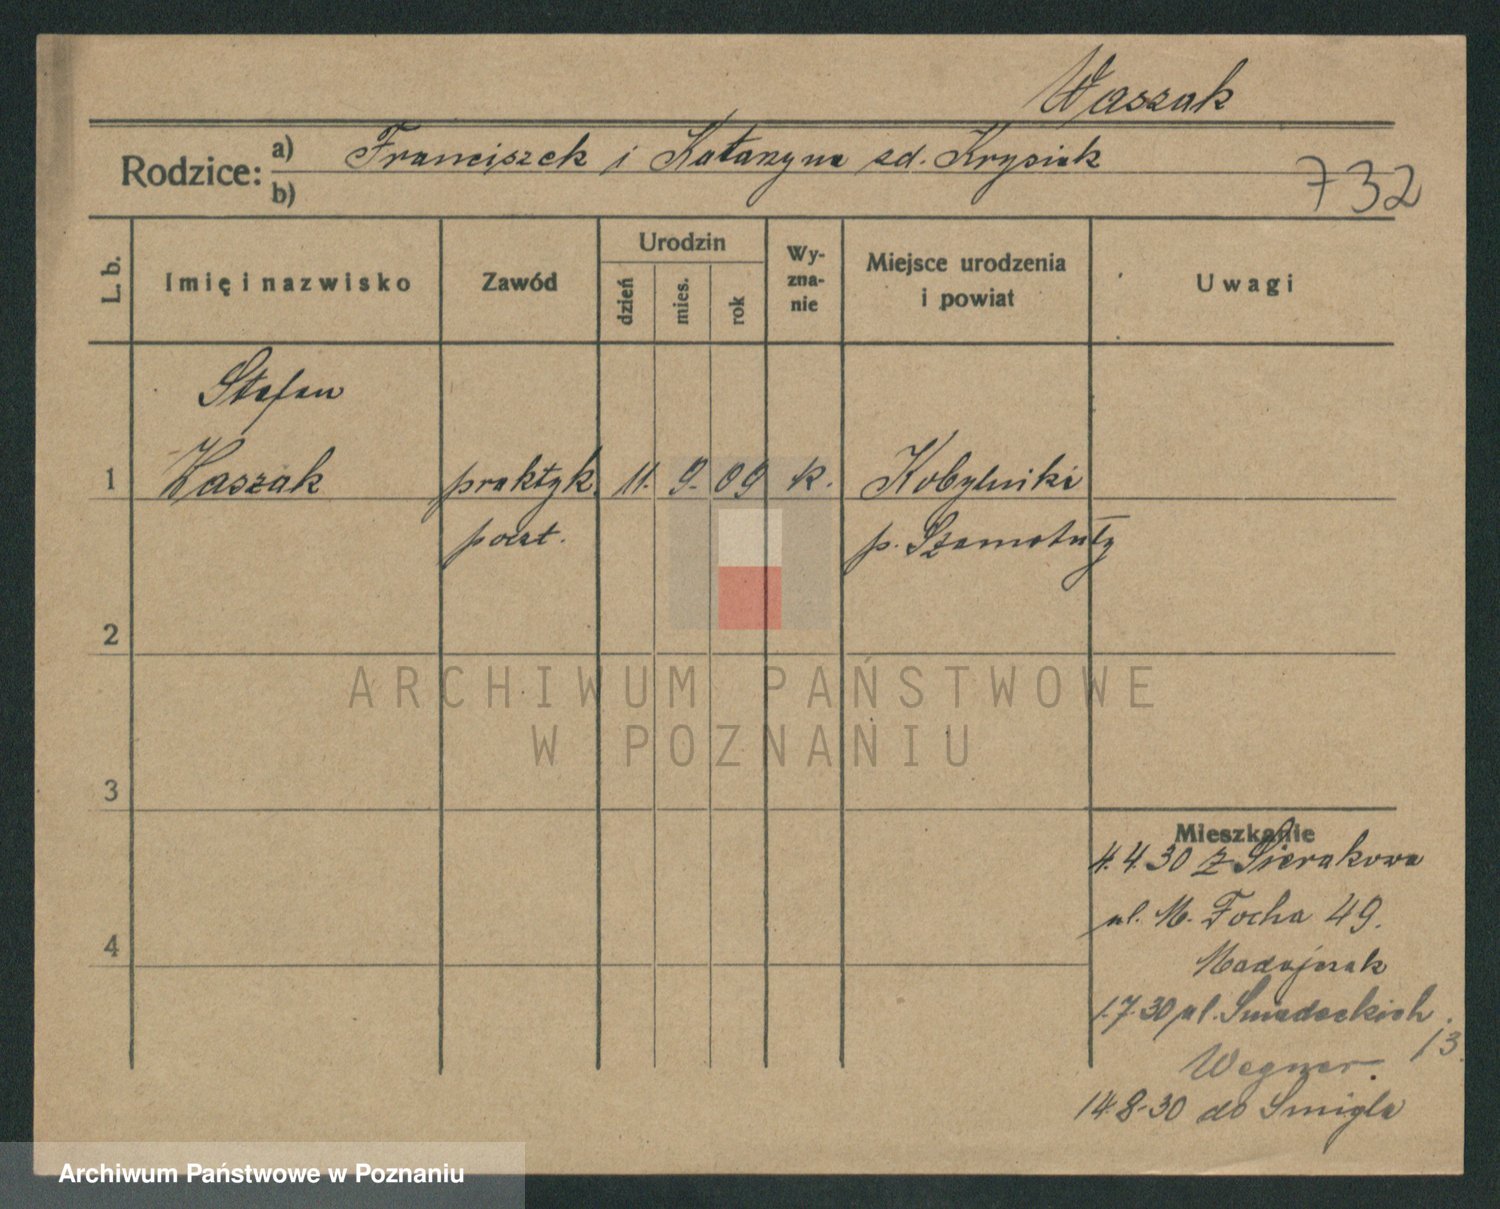 Waszak
Rodzice: a) Franciszek i Katarzyna zd. Krysiak
b)
732
L. b.
Imię i nazwisko
Zawód
Urodzin
dzień
mies.
rok
Wy-
zna-
nie
Miejsce urodzenia
i powiat
Uwagi
Stefan
1 Waszak praktyk. 11. 9. 09 k. Kobylniki
poczt. p. Szamotuły
2
3
4
Mieszkanie
4.4.30 z Sierakowa
ul. M. Focha 49.
Madajczak
1.7.30 ul. Sniadeckich.
13.
Wegner.
14.8.30 do Smigla
ARCHIWUM PAŃSTWOWE
W POZNANIU
Archiwum Państwowe w Poznaniu